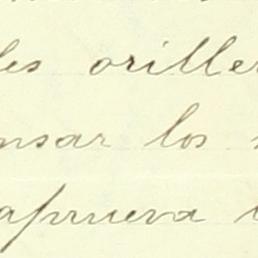 les oriller
nsar los
aprueva